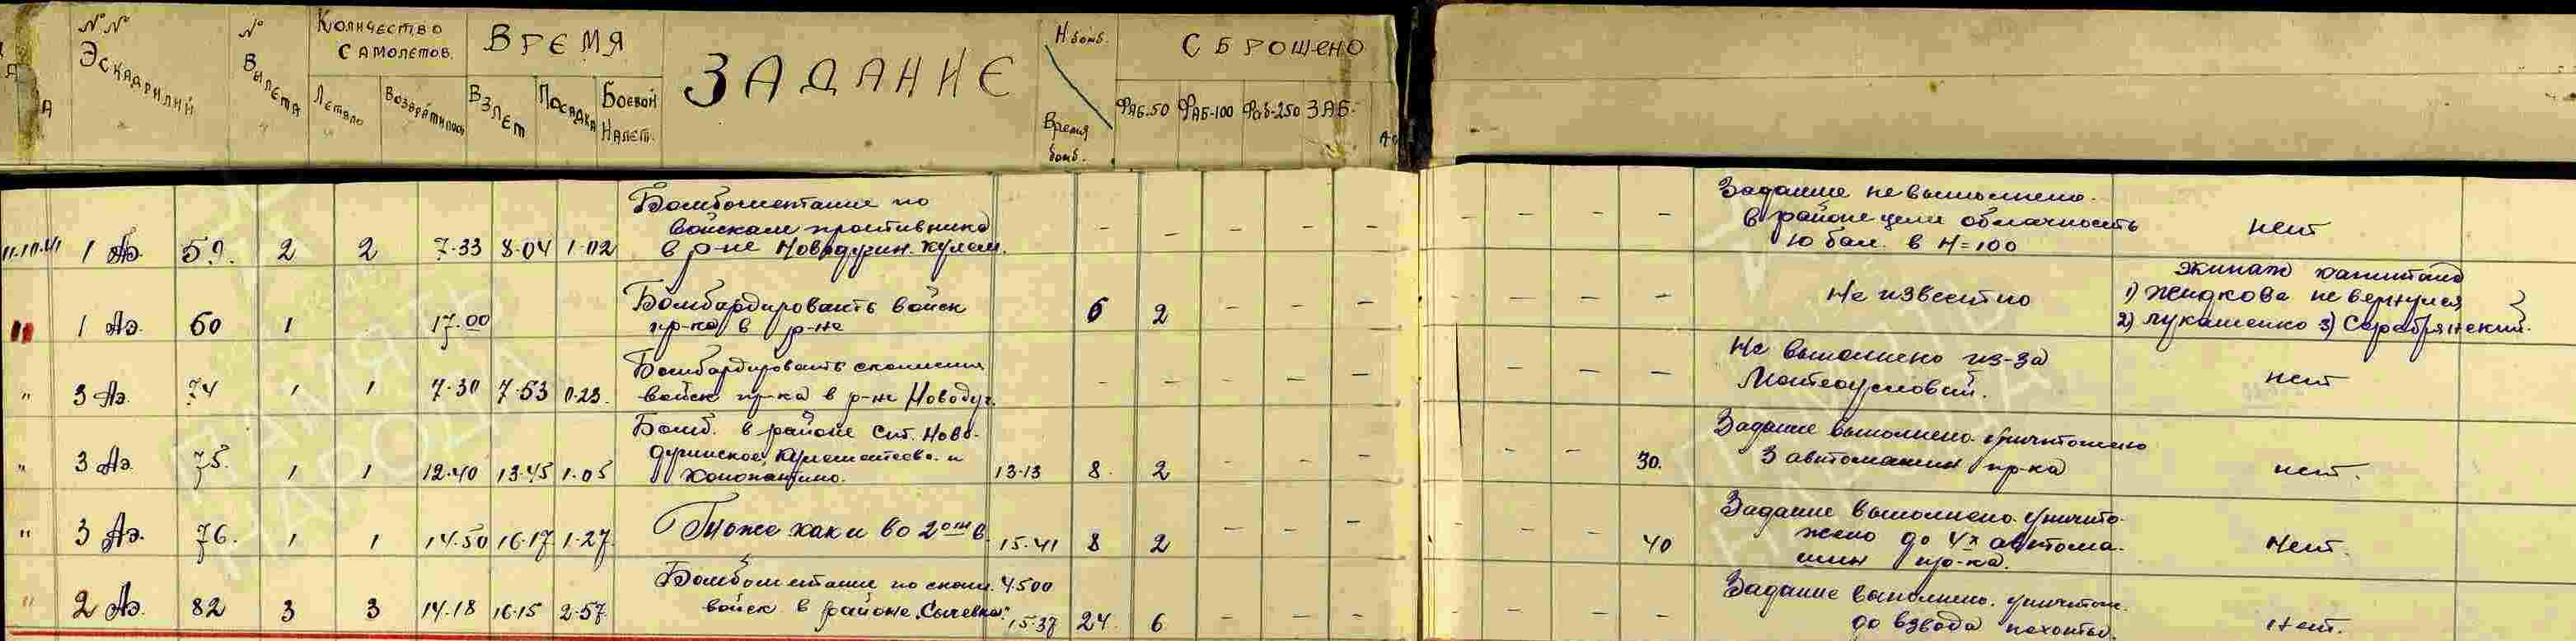 №№ Эскадрилий
№ Вылета
Количество самолетов
Летало
Возвратилось
ВРЕМЯ
Взлет
Посадка
Боевой налет.
ЗАДАНИЕ
H бомб.
Время бомб.
СБРОШЕНО
ФАБ-50 ФАБ-100 Фаб-250 ЗАБ-
Бомбометание по
войскам противника
в р-не
11.10.41 1 Аэ. 59. 2 2 7·33 8·04 1·02 - - - -
- - - -
Задание не выполнено.
в районе цели облачность
10 бал. в H=100
нет
Бомбардировать войск
пр-ка в р-не
" 1 Аэ. 60 1 17·00 6 2 - - -
- - - -
Не известно
экипаж капитана
1) Жидкова не вернулся
2) Лукашенко 3) Серебрянский.
Бомбардировать скопления
войск пр-ка в р-не Новодуг.
" 3 Аэ. 74 1 1 7·30 7·53 0·23. - - - - -
- - - -
Не выполнено из-за
Метеоусловий.
нет
Бомб. в районе ст. Ново-
дугинское,
" 3 Аэ. 75. 1 1 12·40 13·45 1·05 13·13 8. 2 - - -
- - - 30.
Задание выполнено уничтожено
3 автомашин пр-ка
нет.
" 3 Аэ. 76. 1 1 14·50 16·17 1·27. Тоже как и во 2ом в. 15·41 8 2 - - -
- - - 40
Задание выполнено. уничто-
жено до 4х автома-
шин пр-ка.
Нет.
Бомбометание по скоп. 4500
войск в районе "Сычевка"
" 2 Аэ. 82 3 3 14·18 16·15 2·57. 15·37 24. 6 - - -
- - - -
Задание выполнено. уничтож.
до взвода пехоты.
Нет.
ПАМЯТЬ НАРОДА